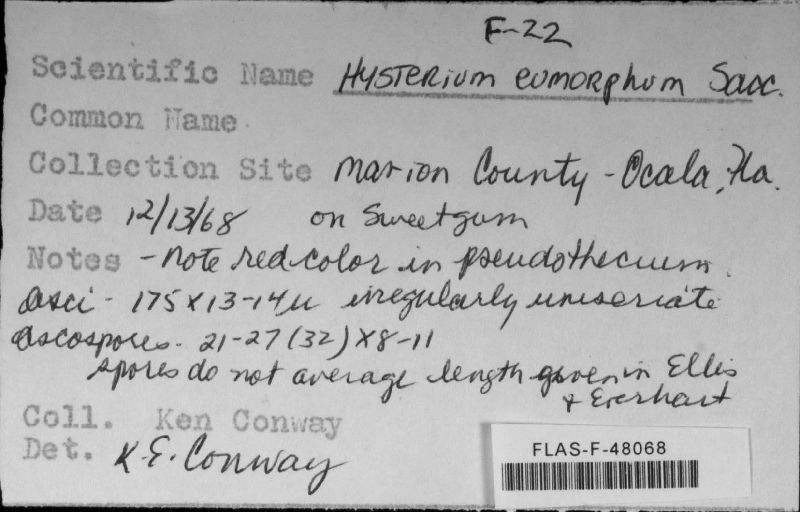 F-22
Scientific Name Hysterium eumorphum Sacc.
Common Name
Collection Site Marion County - Ocala, Fla.
Date 12/13/68 on Sweetgum
Notes - Note red color in pseudothecium.
Asci - 175 x 13-14 µ irregularly uniseriate
Ascospores - 21-27 (32) x 8-11
spores do not average length given in Ellis
& Everhart
Coll. Ken Conway
Det. K.E. Conway
FLAS-F-48068